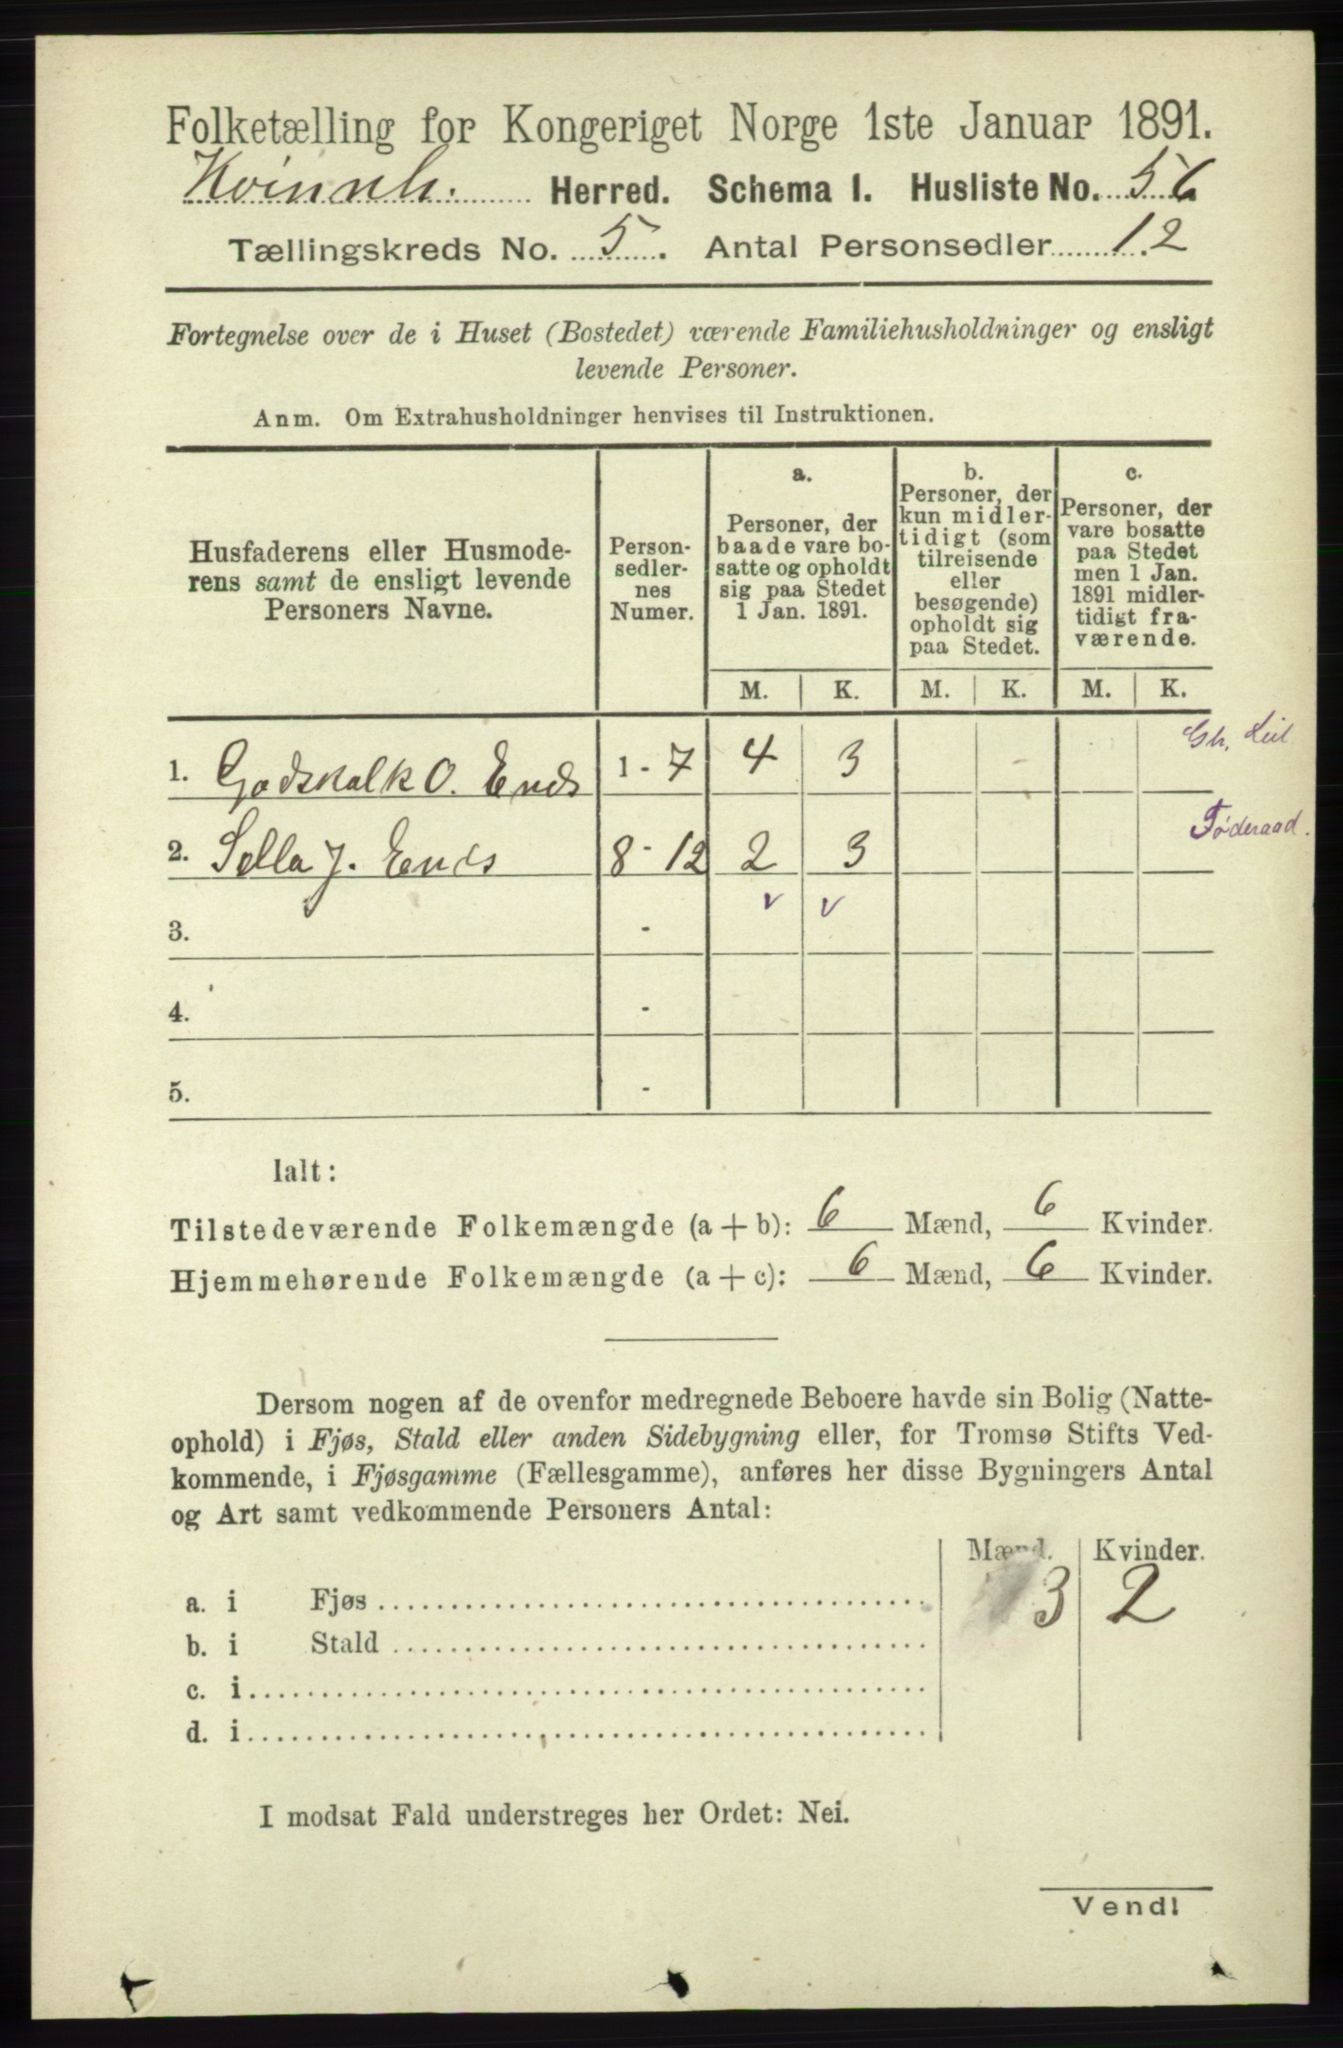 Folketælling for Kongeriget Norge 1ste Januar 1891.
Kvinnh. Herred. Schema 1. Husliste No. 56
Tællingskreds No. 5. Antal Personsedler 12
Fortegnelse over de i Huset (Bostedet) værende Familiehusholdninger og ensligt
levende Personer.
Anm. Om Extrahusholdninger henvises til Instruktionen.
Husfaderens eller Husmode-
rens samt de ensligt levende
Personers Navne.
Person-
sedler-
nes
Numer.
a.
Personer, der
baade vare bo-
satte og opholdt
sig paa Stedet
1 Jan. 1891.
b.
Personer, der
kun midler-
tidigt (som
tilreisende
eller
besøgende)
opholdt sig
paa Stedet.
c.
Personer, der
vare bosatte
paa Stedet
men 1 Jan.
1891 midler-
tidigt fra-
værende.
M. K. M. K. M. K.
1. Godskalk O. Ends 1 - 7 4 3 Gb,
2. Sella J. Ends 8 - 12 2 3 Føderaad.
v v
3. -
4. -
5. -
Ialt:
Tilstedeværende Folkemængde (a + b): 6 Mænd, 6 Kvinder.
Hjemmehørende Folkemængde (a + c): 6 Mænd, 6 Kvinder.
Dersom nogen af de ovenfor medregnede Beboere havde sin Bolig (Natte-
ophold) i Fjøs, Stald eller anden Sidebygning eller, for Tromsø Stifts Ved-
kommende, i Fjøsgamme (Fællesgamme), anføres her disse Bygningers Antal
og Art samt vedkommende Personers Antal:
Mænd. Kvinder.
a. i Fjøs 3 2
b. i Stald
c. i
d. i
I modsat Fald understreges her Ordet: Nei.
Vend!